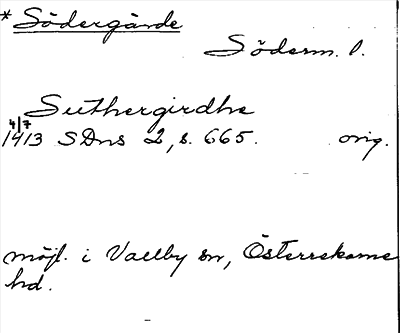 *Södergärde
Söderm. l.
Suthergirdhe
4/7
1413 SDns 2, s. 665. orig.
möjl. i Vallby sn, Österrekarne
hd.